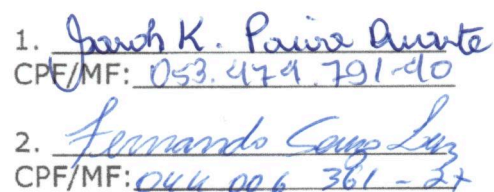 1. Sarah K. Paiva Duarte
CPF/MF: 053.474.791-40
2. Fernando Souza Luz
CPF/MF: 044 006 361 - 27